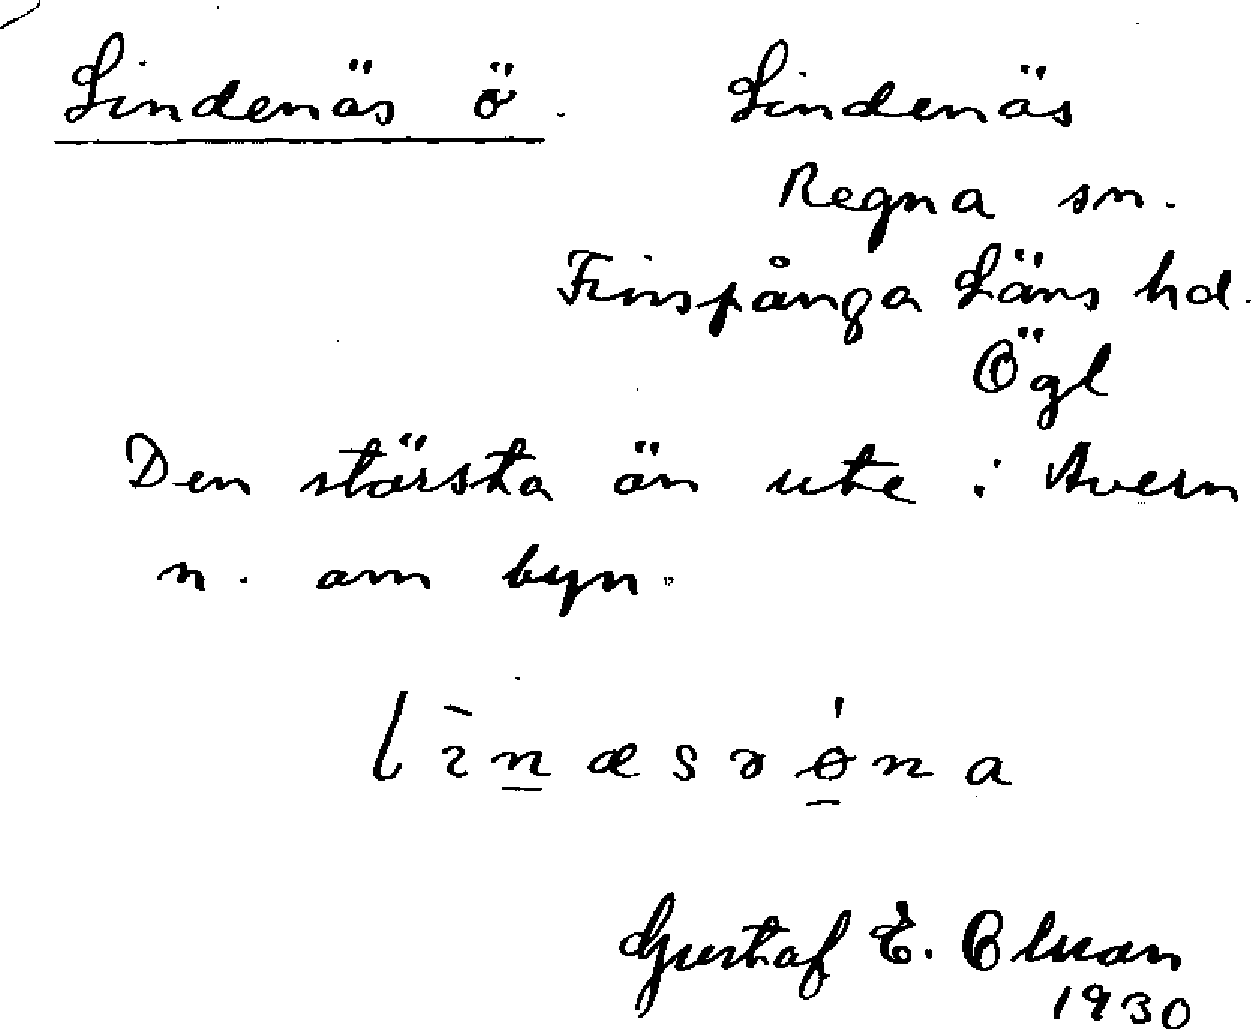 Lindenäs ö. Lindenäs
Regna sn.
Finspånga Läns hd.
Ögl
Den största ön ute i Avern
n. om byn.
Gustaf E.
1930